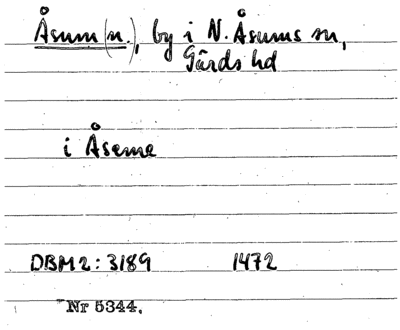 Åsum (n.), by i N. Åsums sn,
Gärds hd
i Åseme
DBM2: 3189 1472
Nr 5344.